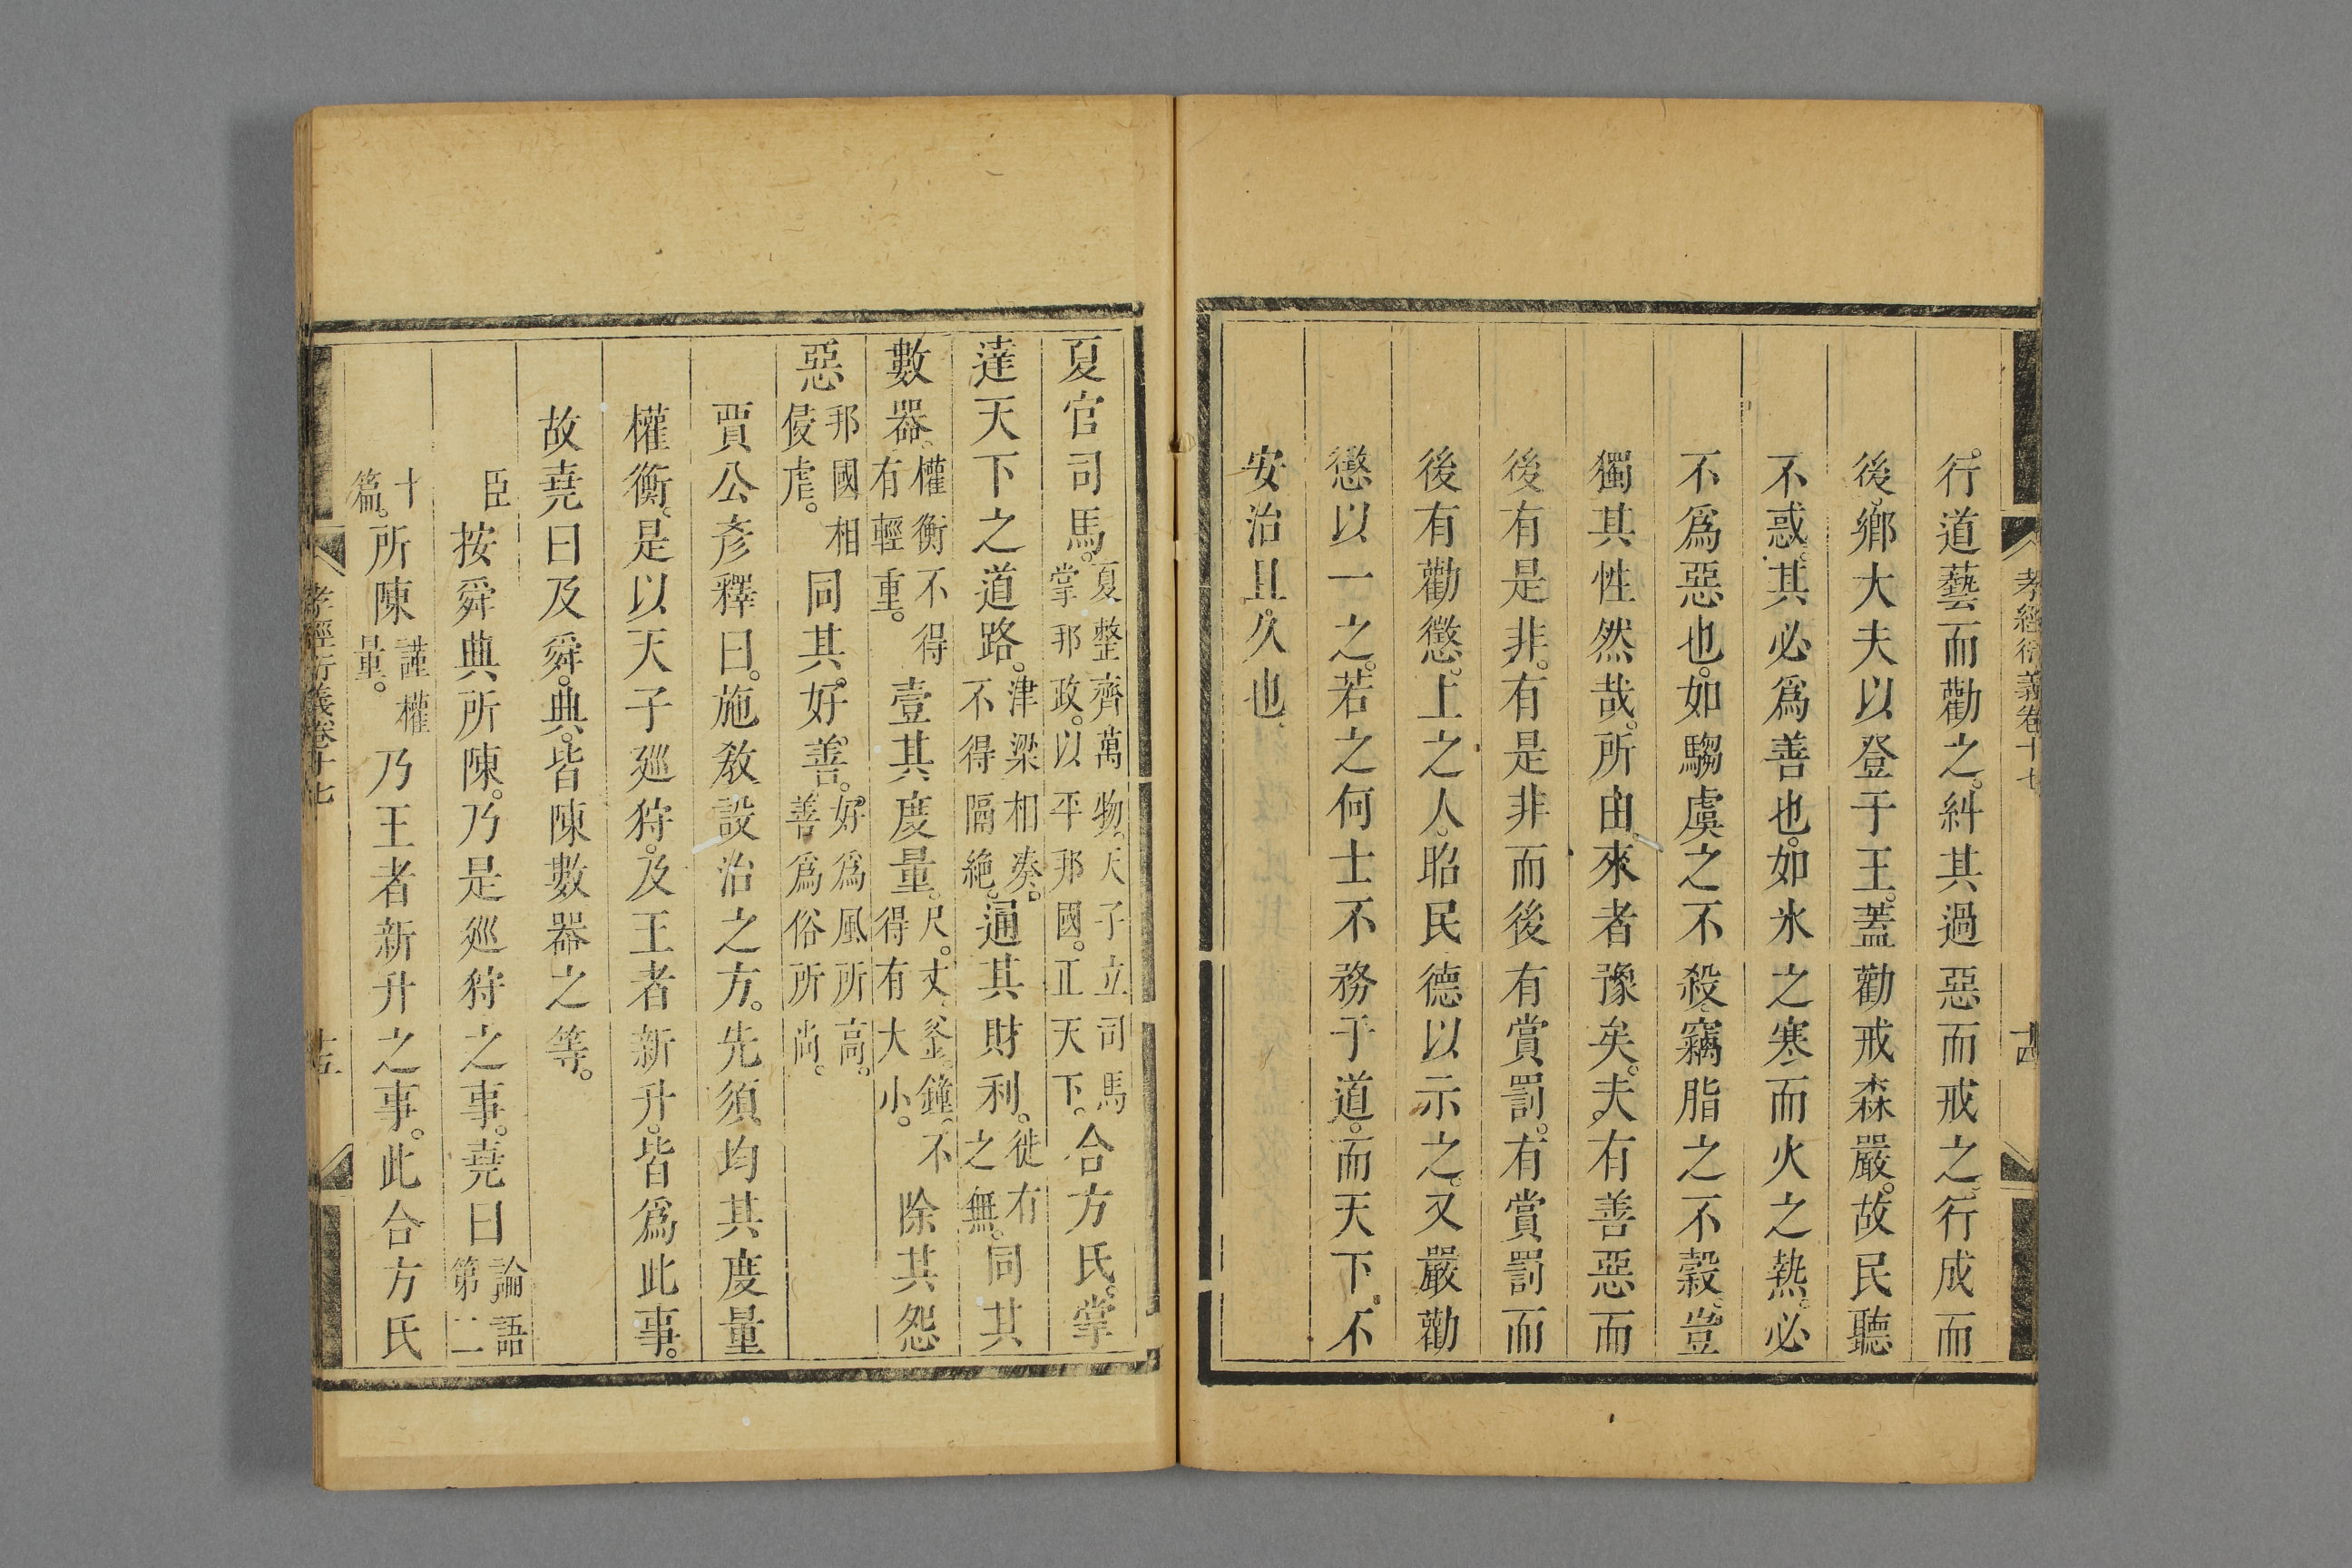 孝經衍義卷十七
十四
行道藝而勸之。糾其過惡而戒之。行成而
後。鄉大夫以登于王。蓋勸戒森嚴。故民聽
不惑。其必爲善也。如水之寒而火之熱。必
不爲惡也。如騶虞之不殺。竊脂之不穀。豈
獨其性然哉。所由來者豫矣。夫有善惡而
後有是非。有是非而後有賞罰。有賞罰而
後有勸懲。上之人。昭民德以示之。又嚴勸
懲以一之。若之何士不務于道。而天下不
安治且久也。
夏官司馬。夏整齊萬物。天子立司馬掌邦政。以平邦國。正天下。合方氏。掌
達天下之道路。津梁相湊。不得隔絶。通其財利。徙有之無。同其
數器。權衡不得有輕重。壹其度量。尺。丈。釜。鐘。不得有大小。除其怨
惡邦國相侵虐。同其好善。好爲風所高。善爲俗所尚。
賈公彥釋曰。施敎設治之方。先須均其度量
權衡。是以天子廵狩。及王者新升。皆爲此事。
故堯曰及舜典。皆陳數器之等。
臣按舜典所陳。乃是廵狩之事。堯曰論語第二
十篇。所陳謹權量。乃王者新升之事。此合方氏
孝經衍義卷十七
十五